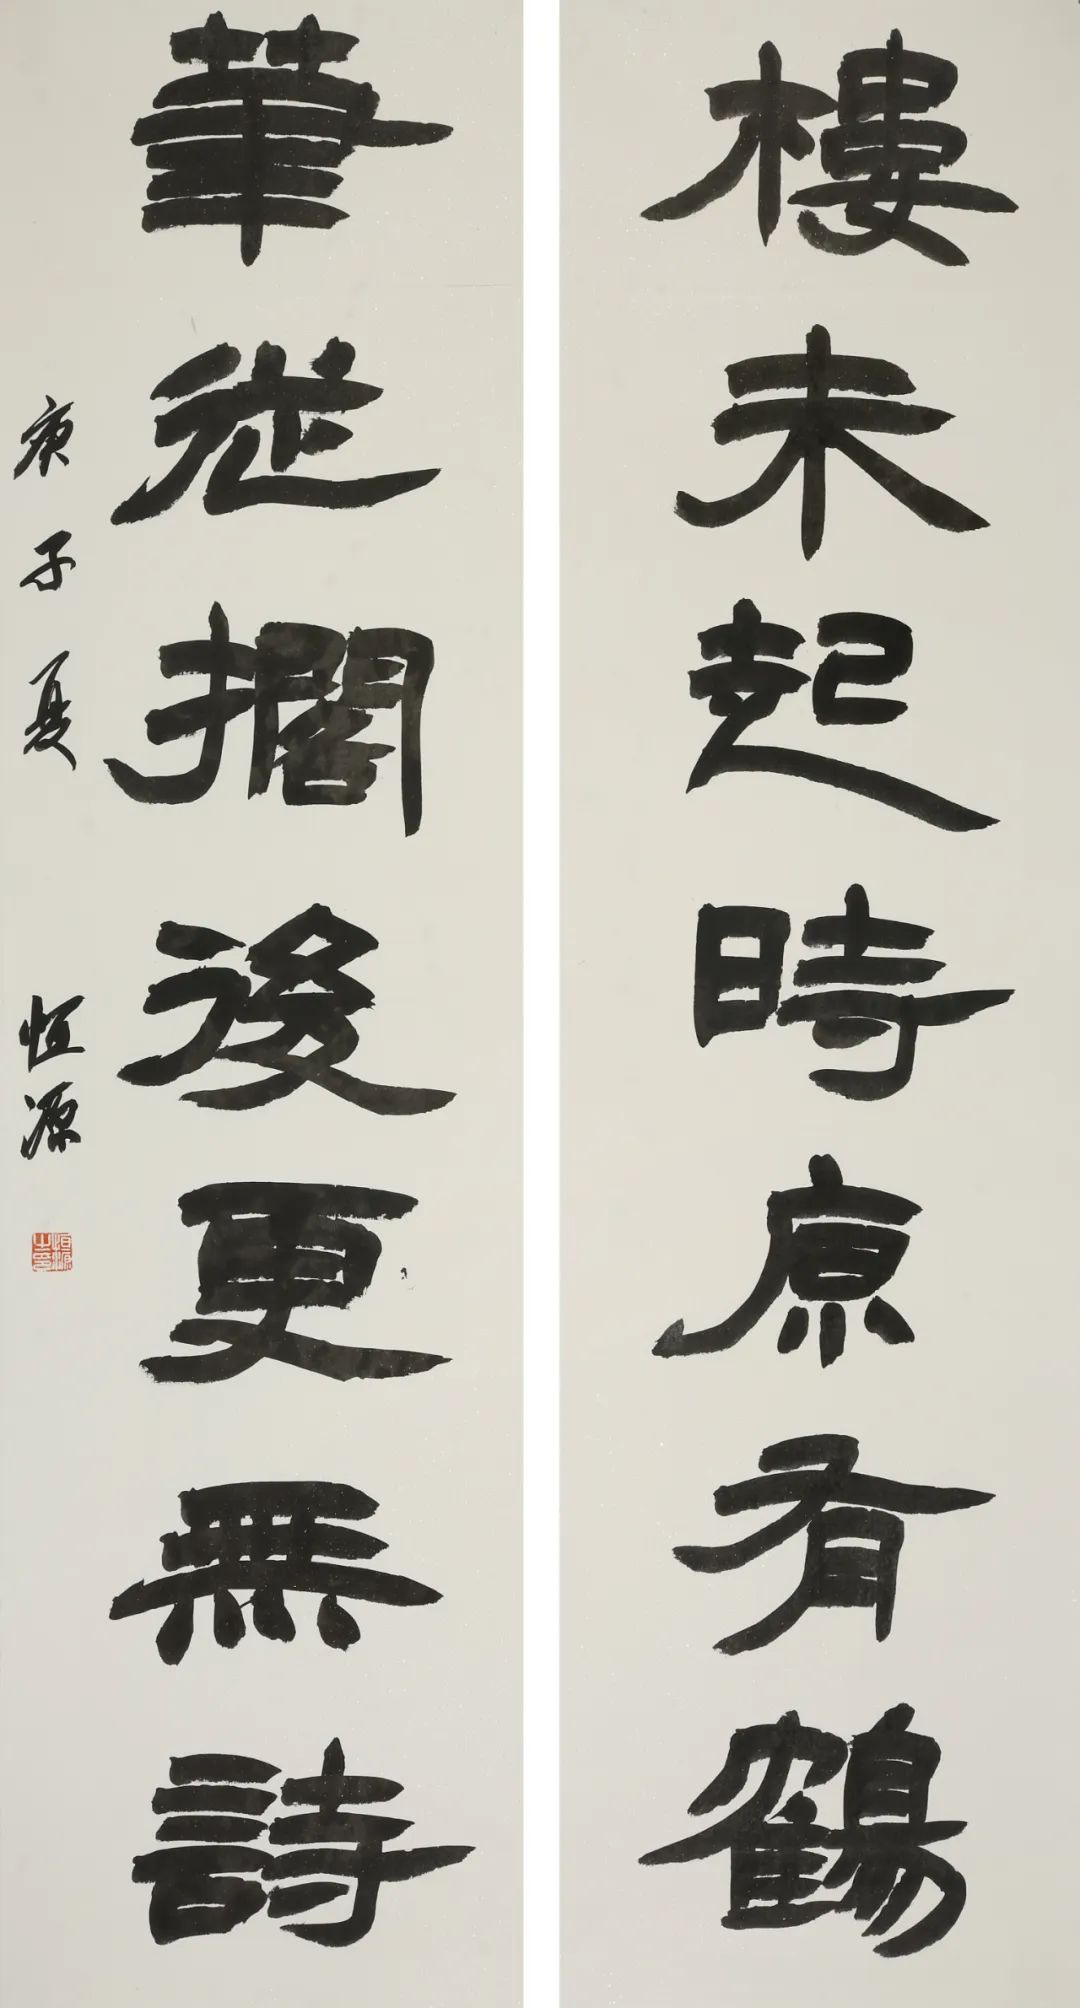 樓未起時原有鶴
筆從擱後更無詩
庚子夏 恒源
恒源之印